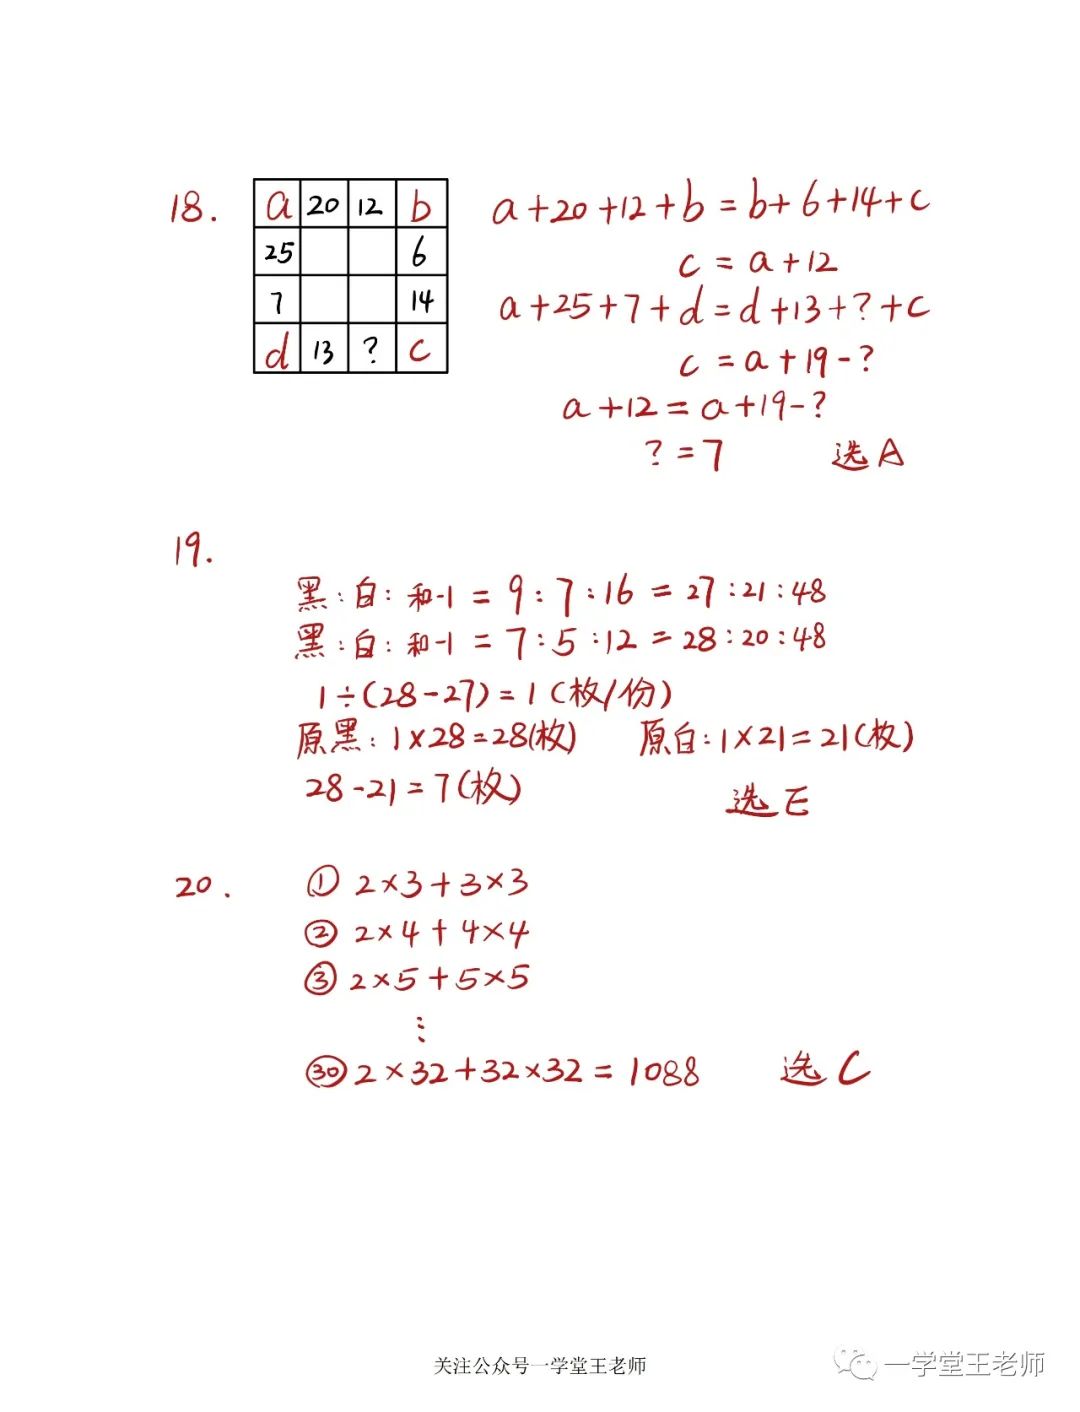 18.
a 20 12 b
25 6
7 14
d 13 ? c
a+20+12+b=b+6+14+c
c=a+12
a+25+7+d=d+13+?+c
c=a+19-?
a+12=a+19-?
?=7 选A
19.
黑:白:和-1=9:7:16=27:21:48
黑:白:和-1=7:5:12=28:20:48
1÷(28-27)=1(枚/份)
原黑:1×28=28(枚) 原白:1×21=21(枚)
28-21=7(枚) 选E
20. ① 2×3+3×3
② 2×4+4×4
③ 2×5+5×5
⋮
㉚ 2×32+32×32=1088 选C
关注公众号一学堂王老师
一学堂王老师